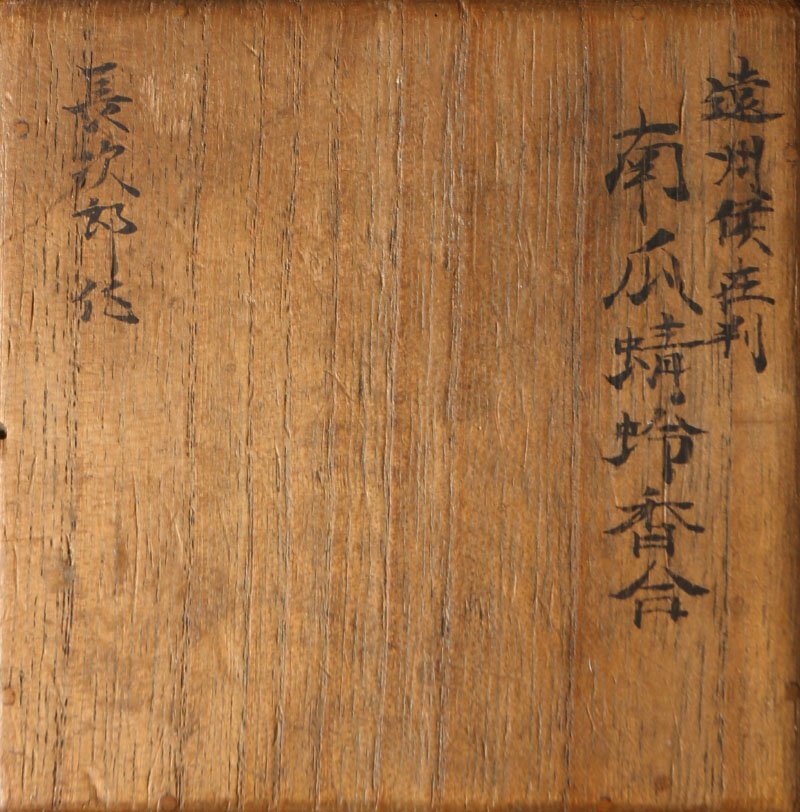 遠州侯在判
南瓜蜻蛉香合
長次郎作